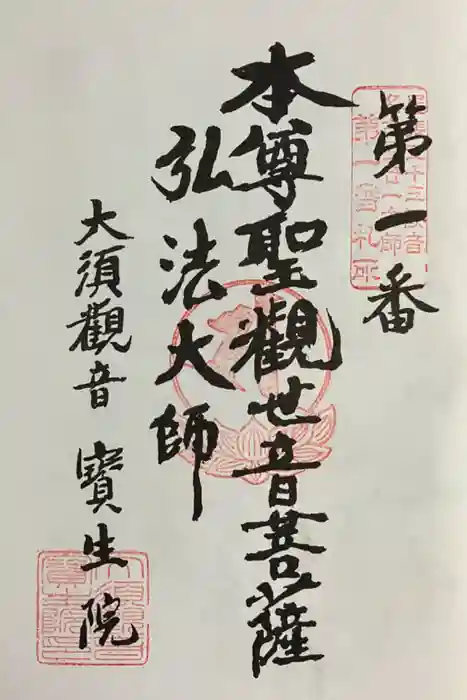 第一番
本尊聖觀世音菩薩
弘法大師
大須觀音 寳生院
第一番札所